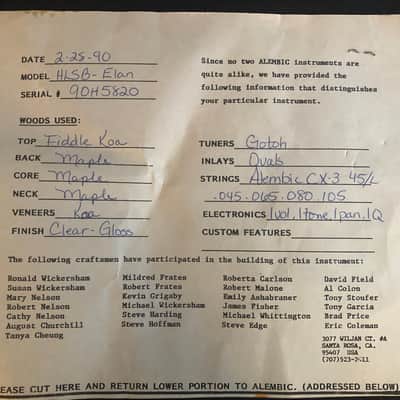 DATE 2-28-90
MODEL HLSB-Elan
SERIAL # 90H5820
Since no two ALEMBIC instruments are
quite alike, we have provided the
following information that distinguishes
your particular instrument.
WOODS USED:
TOP Fiddle Koa
BACK Maple
CORE Maple
NECK Maple
VENEERS Koa
FINISH Clear-Gloss
TUNERS Gotoh
INLAYS Ovals
STRINGS Alembic CX-3 45/
.045 .065 .080 .105
ELECTRONICS 1vol, 1tone, 1pan, 1Q
CUSTOM FEATURES
The following craftsmen have participated in the building of this instrument:
Ronald Wickersham Mildred Frates Roberta Carlson David Field
Susan Wickersham Robert Frates Robert Malone Al Colon
Mary Nelson Kevin Grigaby Emily Ashabraner Tony Stoufer
Robert Nelson Michael Wickersham James Fisher Tony Garcia
Cathy Nelson Steve Harding Michael Whittington Brad Price
August Churchill Steve Hoffman Steve Edge Eric Coleman
Tanya Cheung
3077 WILJAN CT. #A
SANTA ROSA, CA.
95407 USA
(707)523-2611
EASE CUT HERE AND RETURN LOWER PORTION TO ALEMBIC. (ADDRESSED BELOW)